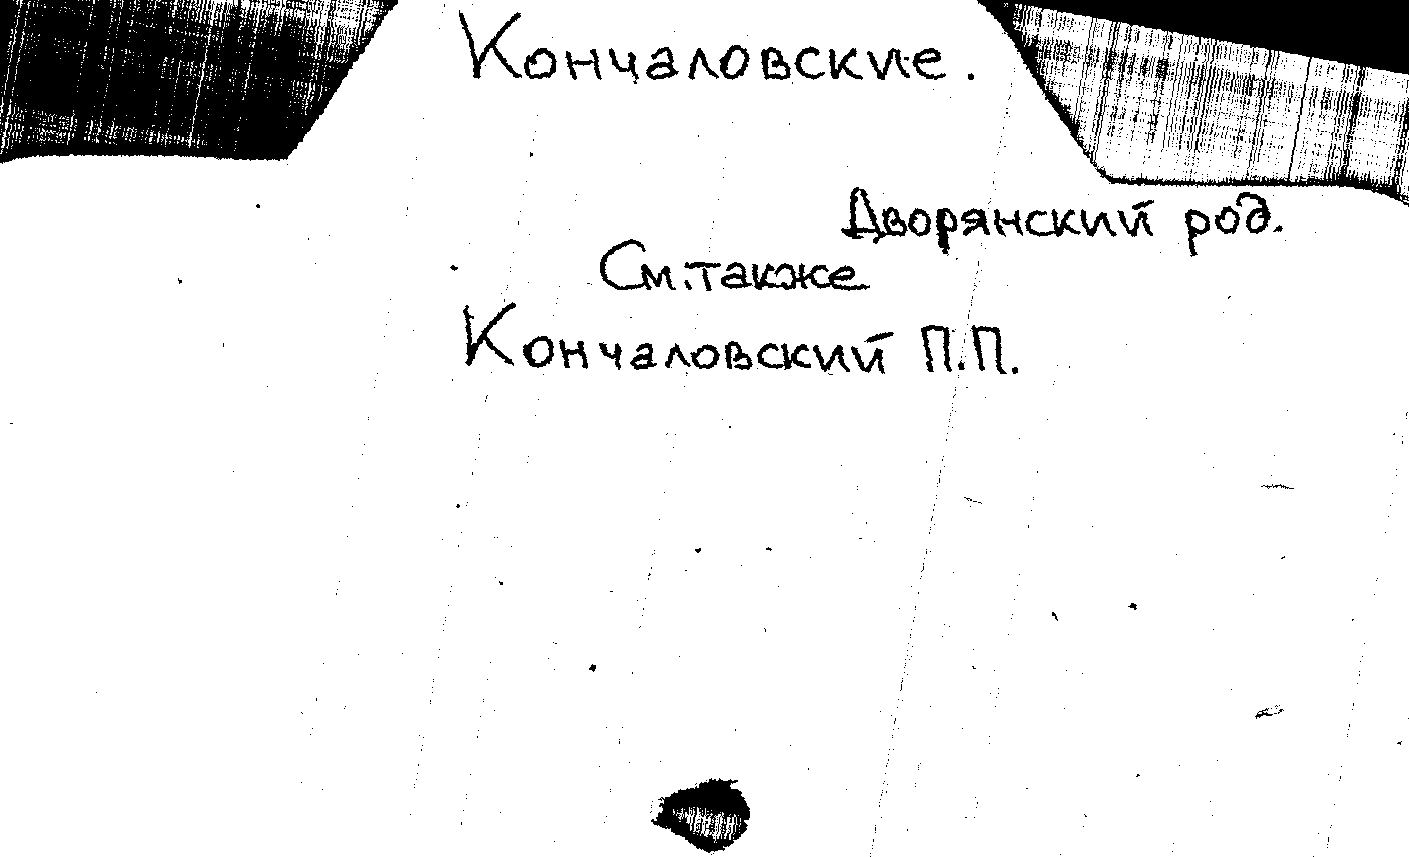 Кончаловские.
Дворянский род.
См. также
Кончаловский П.П.